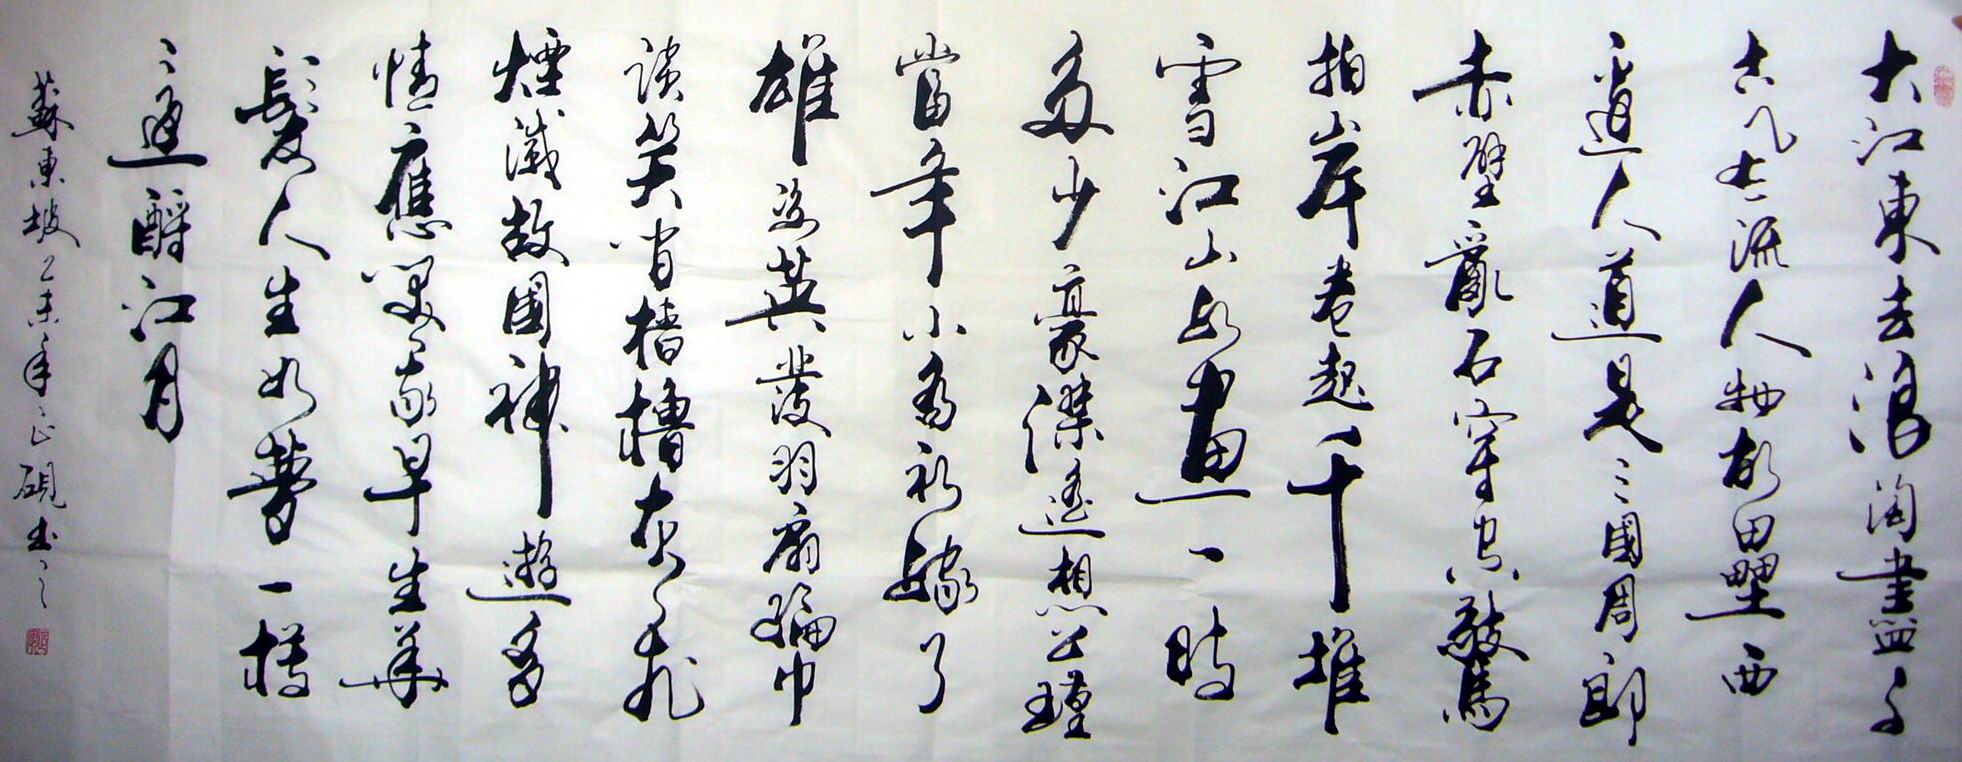 大江東去浪淘盡千
古風流人物故壘西
邊人道是三國周郎
赤壁亂石穿空驚
拍岸卷起千堆
雪江山如畫一時
多少豪傑遙想公瑾
當年小喬初嫁了
雄姿英發羽扇綸巾
談笑間檣櫓灰飛
煙滅故國神遊多
情應笑我早生華
髮人生如夢一樽
還酹江月
蘇東坡乙未年硯書之